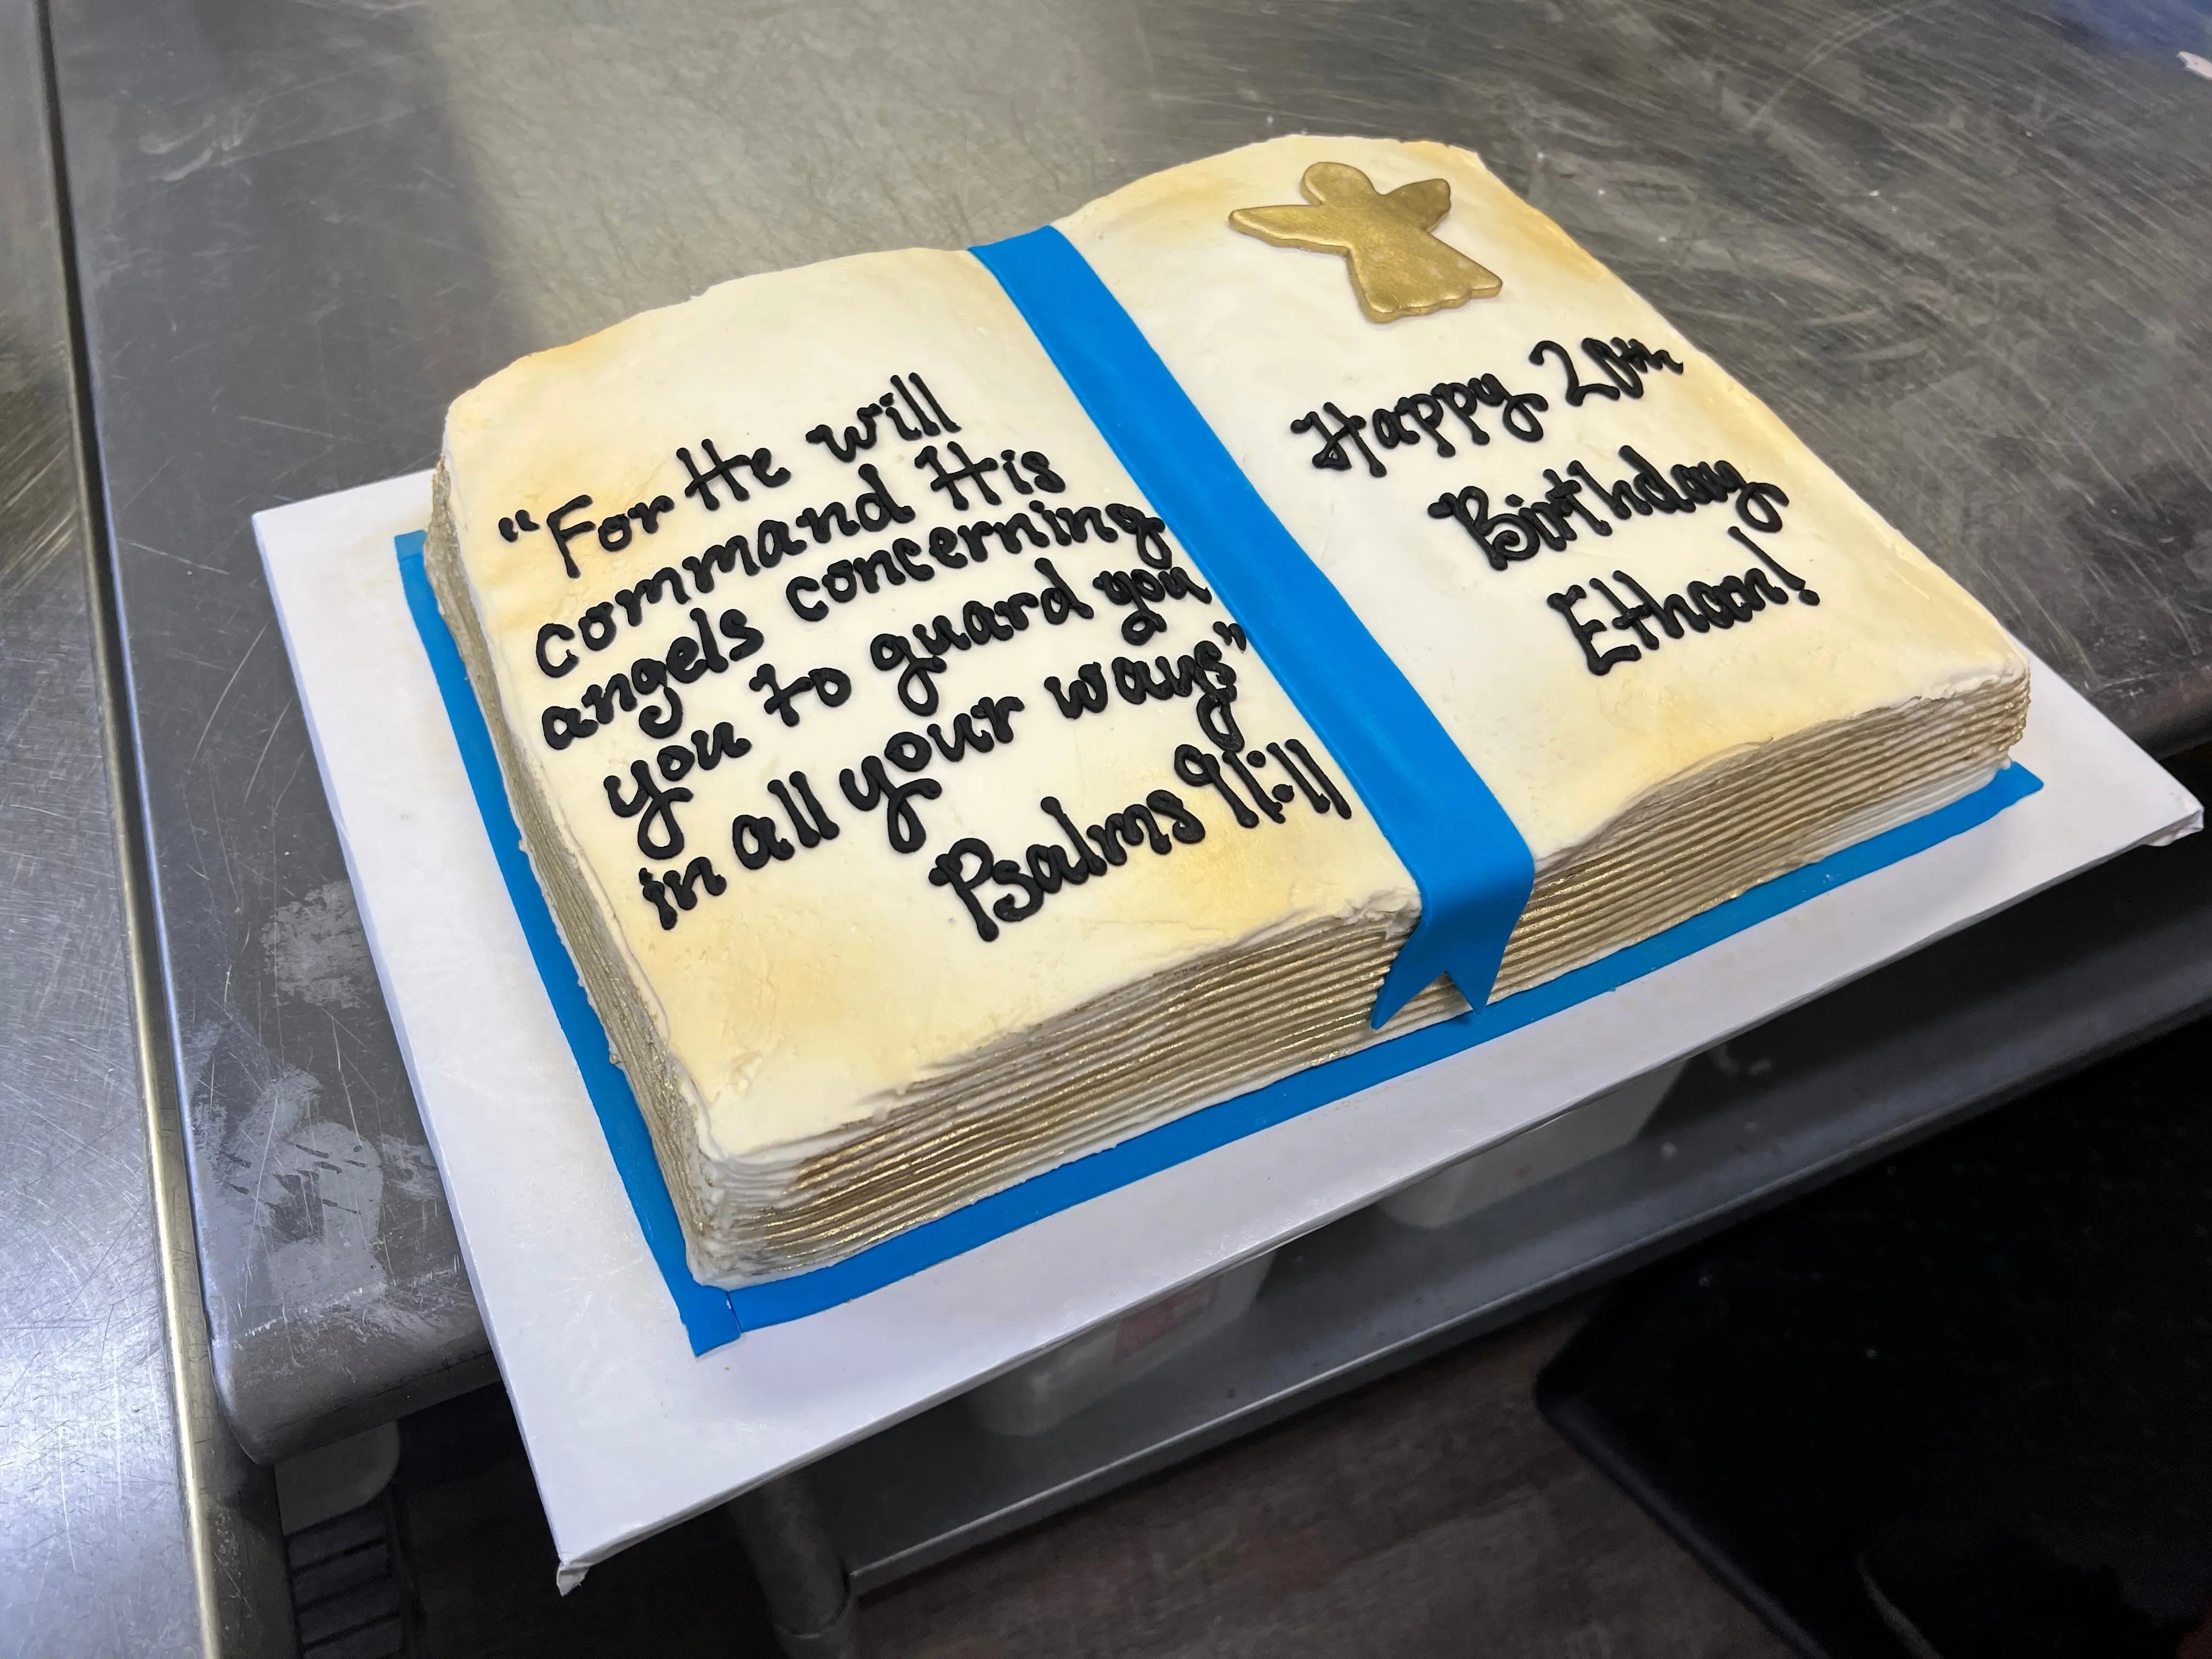 “For He will
command His
angels concerning
you to guard you
in all your ways”
Psalms 91:11
Happy 20th
Birthday
Ethan!